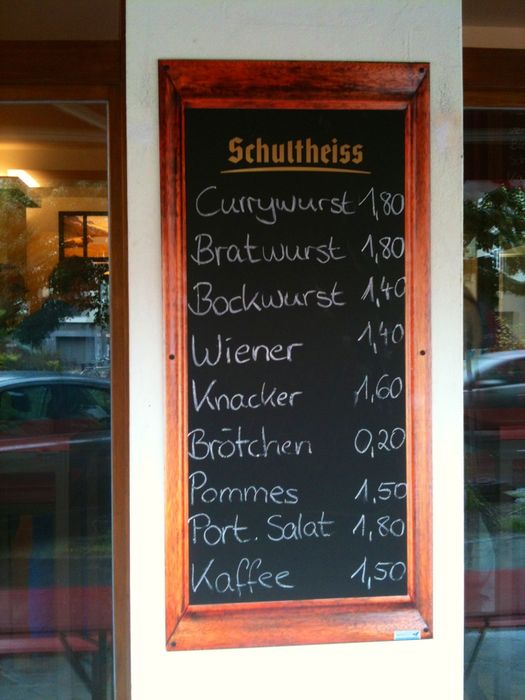 Schultheiss
Currywurst 1,80
Bratwurst 1,80
Bockwurst 1,40
Wiener 1,40
Knacker 1,60
Brötchen 0,20
Pommes 1,50
Port. Salat 1,80
Kaffee 1,50